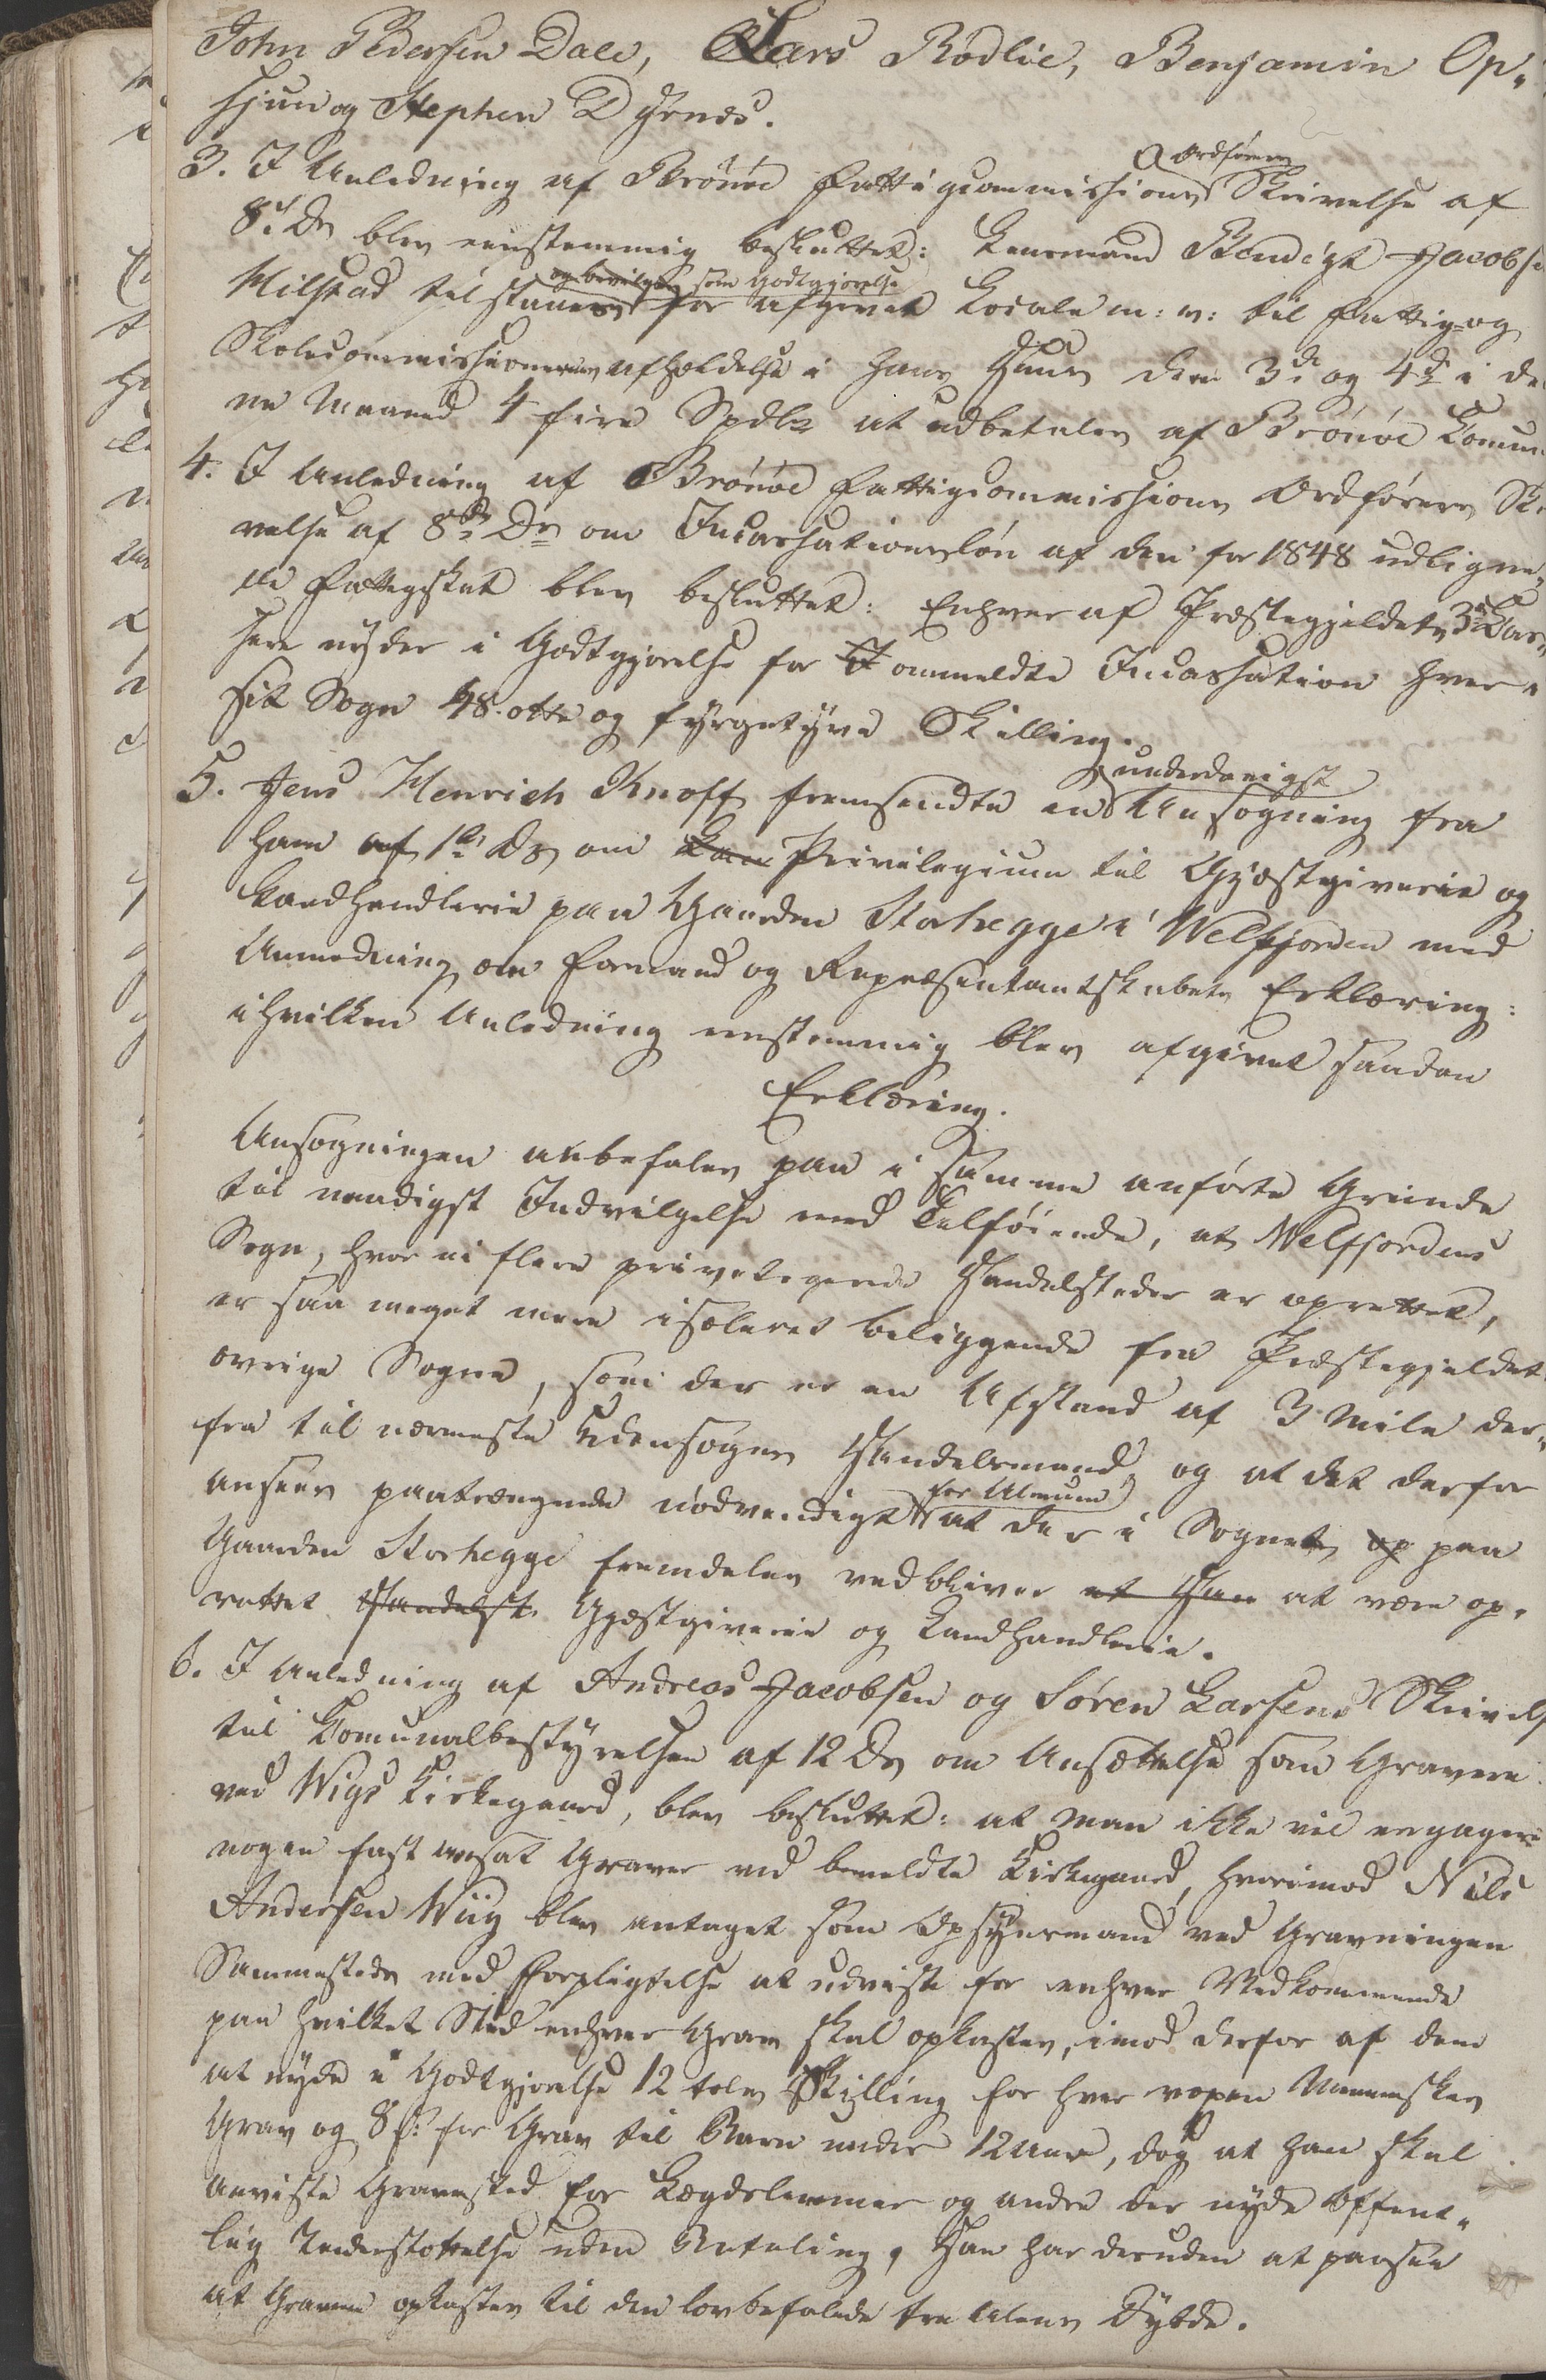 John Pedersen Dale, Lars Rodlie, Benjamin Op-
sjun og Stephen Dyrnes.
3. I Anledning af Brönöe Fattigcommissions Ordförers Skrivelse af
8de Ds blev eenstemmig besluttet: Lensmand Bendigt Jacobse
Milstad tilstaaes og bevilges som Godtgjørelse for afgivet Locale m: v: til Fattig- og
Skolecommissionernes Afholdelse i hans Huus den 3de og 4de i de
ne Maaned 4 fire Spdlr at udbetales af Brönöe Comun
4. I Anledning af Brönöe Fattigcommissions Ordförers Skri
velse af 8de Ds om Incassationslön af den for 1848 udligne-
de Fattigskat blev besluttet: Enhver af Præstegjeldets 3de Cas-
serer nyder i Godtgjørelse for ommeldte Incassation hver i
sit Sogn 48. otte og fyrgetyve Skilling.
5. Jens Henrich Knoff fremsendte en underdanigst Ansøgning fra
ham af 1ste Ds om Privilegium til Gjæstgiverie og
Landhandlerie paa Gaarden Storhegge i Welfjorden med
Anmodning om Formand og Repræsentantskabets Erklæring:
i hvilken Anledning eenstemmig blev afgivet saadan
Erklæring.
Ansøgningen anbefales paa i samme anførte Grunde
til naadigst Indvilgelse med Tilføiende, at Welfjordens
Sogn, hvor ei flere privilegerede Handelsteder er oprettet,
er saa meget mere isoleret beliggende fra Præstegjeldets
øvrige Sogne, som der er en Afstand af 3 Mile der-
fra til nærmeste Udensogns Handelsmand, og at det derfor
ansees paatrængende nødvendigt for Almuen at der i Sognet op paa
Gaarden Storhegge fremdeles vedbliver et Han at være op-
rettet Handelst. Gjæstgiverie og Landhandlerie.
6. I Anledning af Andreas Jacobsen og Søren Larsens Skrivels
til Comunalbestyrelsen af 12 Ds om Ansættelse som Gravere
ved Wigs Kirkegaard, blev besluttet: at man ikke vil engagere
nogen fast ansat Graver ved bemeldte Kirkegaard, hvorimod Nils
Andersen Wiig blev antaget som Opsynsmand ved Gravningen
Sammesteds med Forpligtelse at udvise for enhver Vedkommende
paa hvilket Sted enhver Grav skal opkastes, imod derfor af dem
at nyde i Godtgjørelse 12 tolv Skilling for hver voxen Menneskes
Grav og 8 s: for Grav til Barn under 12 Aar, dog at han skal
anvise Gravsted for Lægdslemmer og andre der nyde offent-
lig Understøttelse uden Betaling, Han har desuden at paasee
at Gravene opkastes til den lovbefalede tre Alens Dybde.